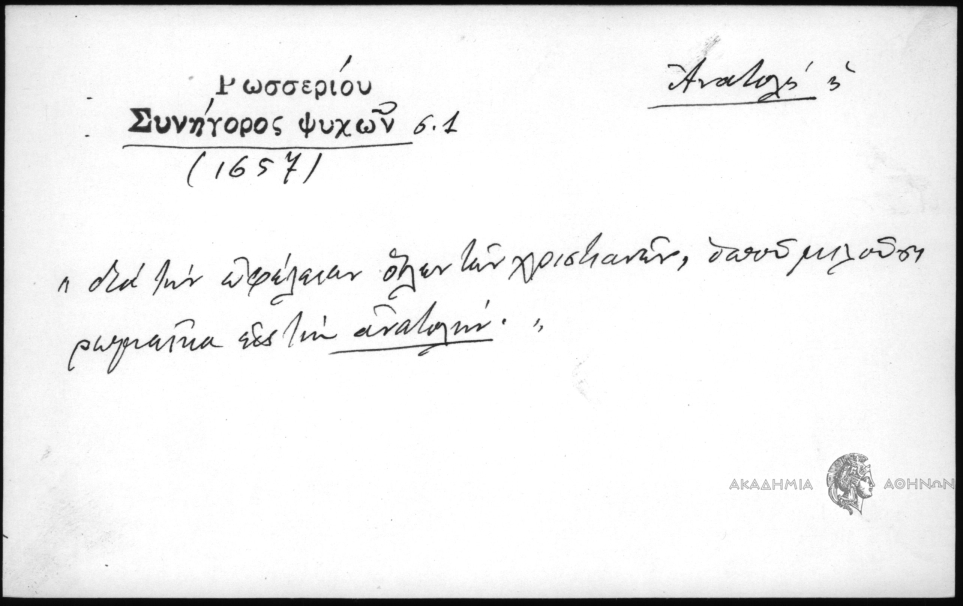 Ῥωσσερίου
Συνήγορος ψυχῶν σ. 1
(1657)
Ἀνατολὴ ἡ
"διὰ τὴν ὠφέλειαν ὅλων τῶν χριστιανῶν, ὁποῦ μιλοῦσι
ρωμαίϊκα εἰς τὴν ἀνατολήν."
ΑΚΑΔΗΜΙΑ ΑΘΗΝΩΝ